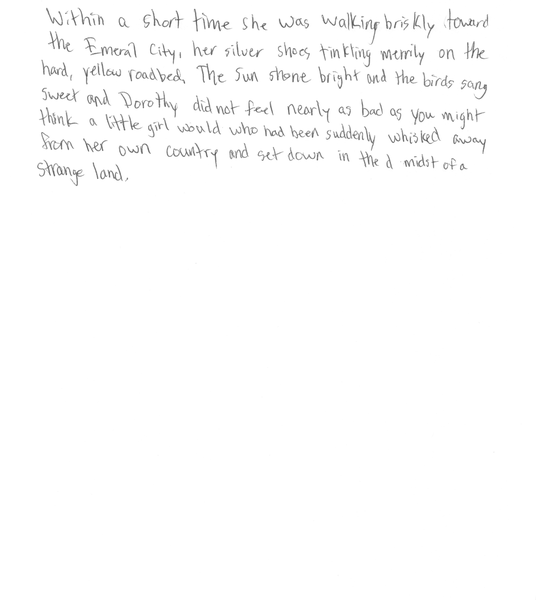 Within a short time she was walking briskly toward
the Emeral City, her silver shoes tinkling merrily on the
hard, yellow roadbed. The sun shone bright and the birds sang
sweet and Dorothy did not feel nearly as bad as you might
think a little girl would who had been suddenly whisked away
from her own country and set down in the d midst of a
strange land.